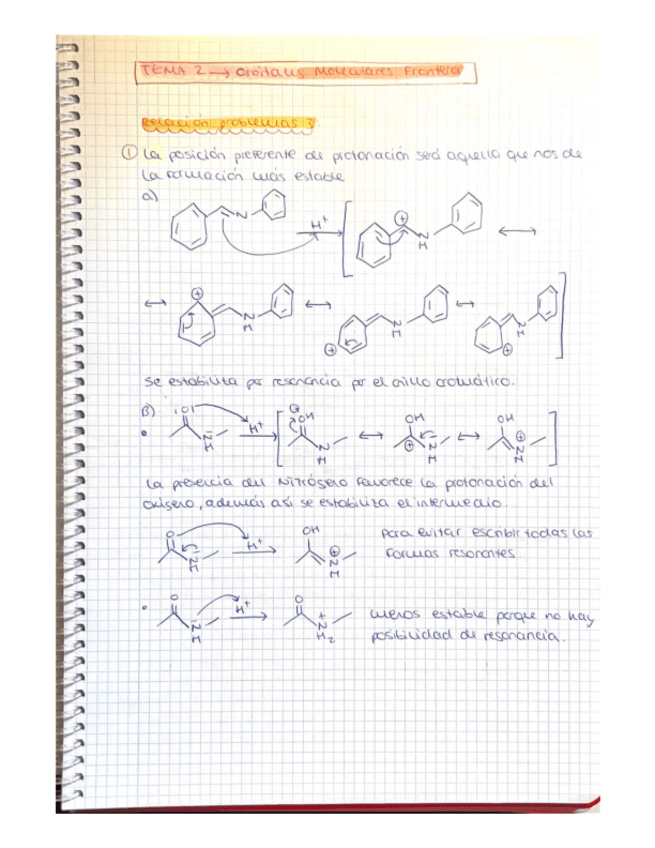 TEMA 2 → Orbitales Moleculares Frontera
Relación problemas 3.
① La posición preferente de protonación será aquella que nos de
la formación más estable
a)
N H⁺ ⊕ N H ↔
↔ ⊕ N H ↔ ⊕ N H ↔ ⊕ N H
Se estabiliza por resonancia por el anillo aromático.
B)
• :O: N H H⁺ ⊕ OH N H ↔ OH ⊕ N H ↔ OH ⊕ N H
La presencia del Nitrógeno favorece la protonación del
oxígeno, además así se estabiliza el intermedio.
O N H H⁺ OH ⊕ N H
para evitar escribir todas las
formas resonantes.
• O N H H⁺ O + N H₂
menos estable porque no hay
posibilidad de resonancia.